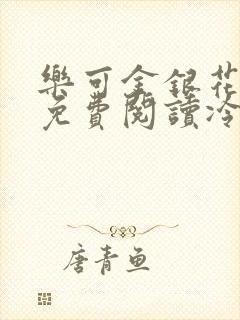 樂可金銀花
免費閱讀冷
唐青魚